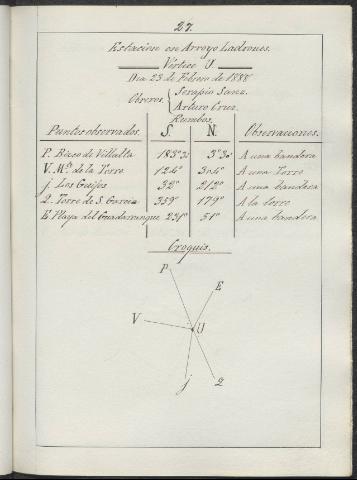 27.
Estacion en Arroyo Ladrones.
Vértice U.
Dia 23 de Febrero de 1888
Obreros. { Serapio Sanz.
Arturo Cruz.
Rumbos.
Puntos observados. S. N. Observaciones.
P. de Villalta 183°30' 3°30' A una bandera
V. Mª. de la Torre 124° 304° A una Torre
j. Los Guijos 32° 212° A una bandera
2. Torre de S. Garcia 359° 179° A la torre
E. Playa del Guadarranque 231° 51° A una bandera
Croquis.
P
E
V
U
j
2